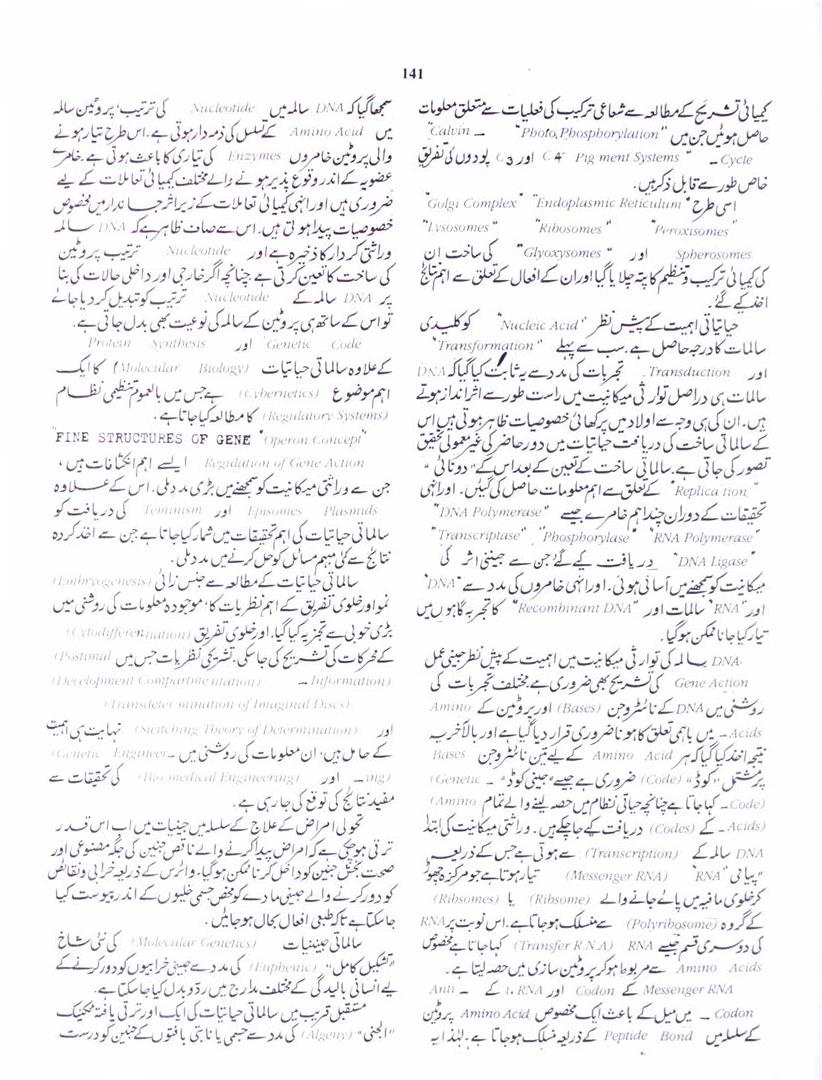 141
کیمیائی تشریح کے مطالعہ سے شعاعی ترکیب کی فعلیات سے متعلق معلومات
حاصل ہوئیں جن میں "Photo,Phosphorylation" ـ "Calvin
Cycle" ـ "Pig ment Systems" C4 اور C3 پودوں کی تفریق
خاص طور سے قابل ذکر ہیں۔
اسی طرح "Endoplasmic Reticulum" "Golgi Complex"
"Peroxisomes" "Ribosomes" "Lysosomes"
Spherosomes اور "Glyoxysomes" کی ساخت ان
کی کیمیائی ترکیب و تنظیم کا پتہ چلایا گیا اور ان کے افعال کے تعلق سے اہم نتائج
اخذ کیے گئے۔
حیاتیاتی اہمیت کے پیش نظر "Nucleic Acid" کو کلیدی
سالمات کا درجہ حاصل ہے۔ سب سے پہلے "Transformation"
اور Transduction. تجربات کی مدد سے یہ ثابت کیا گیا کہ DNA
سالمات ہی دراصل توارثی میکانیت میں راست طور سے اثر انداز ہوتے
ہیں۔ ان کی ہی وجہ سے اولاد میں پرکھائی خصوصیات ظاہر ہوتی ہیں اس
کے سالماتی ساخت کی دریافت حیاتیات میں دور حاضر کی غیر معمولی تحقیق
تصور کی جاتی ہے۔ سالماتی ساخت کے تعین کے بعد اس کے "دوتائی"
"Replica tion" کے تعلق سے اہم معلومات حاصل کی گئیں۔ اور انہی
تحقیقات کے دوران چند اہم خامرے جیسے "DNA Polymerase"
"RNA Polymerase" "Phosphorylase" "Transcriptase"
"DNA Ligase" دریافت کیے گئے جن سے جینی اثر کی
میکانیت کو سمجھنے میں آسانی ہوئی۔ اور انہی خامروں کی مدد سے "DNA"
اور "RNA" سالمات اور "Recombinant DNA" کا تجربہ گاہوں میں
تیار کیا جانا ممکن ہوگیا۔
DNA سالمہ کی توارثی میکانیت میں اہمیت کے پیش نظر جینی عمل
Gene Action کی تشریح بھی ضروری ہے۔ مختلف تجربات کی
روشنی میں DNA کے نائٹروجن (Bases) اور پروٹین کے Amino
Acids ـ میں باہمی تعلق کا ہونا ضروری قرار دیا گیا ہے اور بالآخر یہ
نتیجہ اخذ کیا گیا کہ ہر Amino Acid کے لیے تین نائٹروجن Bases
پر مشتمل "کوڈ" (Code) ضروری ہے جیسے "جینی کوڈ" ـ (Genetic
Code) ـ کہا جاتا ہے چنانچہ حیاتی نظام میں حصہ لینے والے تمام (Amino
Acids) ـ کے (Codes) دریافت کیے جاچکے ہیں۔ وراثتی میکانیت کی ابتدا
DNA سالمہ کے (Transcription) سے ہوتی ہے جس کے ذریعہ
"پیامی RNA" (Messenger RNA) تیار ہوتا ہے جو مرکزہ چھوڑ
کر خلوی مافیہ میں پائے جانے والے (Ribsome) یا (Ribsomes)
کے گروہ (Polyribosome) سے منسلک ہوجاتا ہے۔ اس نوبت پر RNA
کی دوسری قسم جیسے RNA (Transfer R.N.A) کہا جاتا ہے مخصوص
Amino Acids سے مربوط ہوکر پروٹین سازی میں حصہ لیتا ہے۔
Messenger RNA کے Codon اور t. RNA کے ـ Anti
Codon ـ میں میل کے باعث ایک مخصوص Amino Acid پروٹین
کے سلسلہ میں Peptide Bond کے ذریعہ منسلک ہوجاتا ہے۔ لہٰذا یہ
سمجھا گیا کہ DNA سالمہ میں Nucleotide کی ترتیب، پروٹین سالمہ
میں Amino Acid کے تسلسل کی ذمہ دار ہوتی ہے۔ اس طرح تیار ہونے
والی پروٹین خامروں Enzymes کی تیاری کا باعث ہوتی ہے۔ خامرے
عضویہ کے اندر وقوع پذیر ہونے والے مختلف کیمیائی تعاملات کے لیے
ضروری ہیں اور انہی کیمیائی تعاملات کے زیر اثر جانداروں میں مخصوص
خصوصیات پیدا ہوتی ہیں۔ اس سے صاف ظاہر ہے کہ DNA سالمہ
وراثتی کردار کا ذخیرہ ہے اور Nucleotide ترتیب پروٹین
کی ساخت کا تعین کرتی ہے چنانچہ اگر خارجی اور داخلی حالات کی بنا
پر DNA سالمہ کے Nucleotide ترتیب کو تبدیل کردیا جائے
تو اس کے ساتھ ہی پروٹین کے سالمہ کی نوعیت بھی بدل جاتی ہے۔
Genetic Code اور Protein Synthesis
کے علاوہ سالماتی حیاتیات (Molecular Biology) کا ایک
اہم موضوع (Cybernetics) ہے جس میں بالعموم تنظیمی نظام
(Regulatory Systems) کا مطالعہ کیا جاتا ہے۔
"Operon Concept" FINE STRUCTURES OF GENE
Regulation of Gene Action ایسے اہم انکشافات ہیں،
جن سے وراثتی میکانیت کو سمجھنے میں بڑی مدد ملی۔ اس کے علاوہ
Episomes Plasmids اور Teminism کی دریافت کو
سالماتی حیاتیات کی اہم تحقیقات میں شمار کیا جاتا ہے جن سے اخذ کردہ
نتائج سے کئی مبہم مسائل کو حل کرنے میں مدد ملی۔
سالماتی حیاتیات کے مطالعہ سے جنین زائی (Embryogenesis)
نمو اور خلوی تفریق کے اہم نظریات کا، موجودہ معلومات کی روشنی میں
بڑی خوبی سے تجزیہ کیا گیا۔ اور خلوی تفریق (Cytodifferentiation)
کے محرکات کی تشریح کی جاسکی۔ تشریحی نظریات جس میں (Postimal
Information) ـ (Development Compartme ntation)
(Transdeter mination of Imaginal Discs)
اور (Switching Theory of Determination) نہایت ہی اہمیت
کے حامل ہیں، ان معلومات کی روشنی میں ـ Genetic Engineer)
ing) ـ اور (Bio medical Engineering) کی تحقیقات سے
مفید نتائج کی توقع کی جارہی ہے۔
تحولی امراض کے علاج کے سلسلہ میں جینیات میں اب اس قدر
ترقی ہوچکی ہے کہ امراض پیدا کرنے والے ناقص جنین کی جگہ مصنوعی اور
صحت بخش جنین کو داخل کرنا ممکن ہوگیا۔ وائرس کے ذریعہ خرابی و نقائص
کو دور کرنے والے جینی مادے کو مخصوص جسمی خلیوں کے اندر پیوست کیا
جاسکتا ہے تاکہ طبعی افعال بحال ہوجائیں۔
سالماتی جینیات (Molecular Genetics) کی نئی شاخ
"تشکیل کامل" (Euphenic) کی مدد سے جینی خرابیوں کو دور کرنے کے
لیے انسانی بالیدگی کے مختلف مدارج میں رد و بدل کیا جاسکتا ہے۔
مستقبل قریب میں سالماتی حیاتیات کی ایک اور ترقی یافتہ تکنیک
"الجنی" (Algeny) کی مدد سے جسمی یا نباتی بافتوں کے جنین کو درست